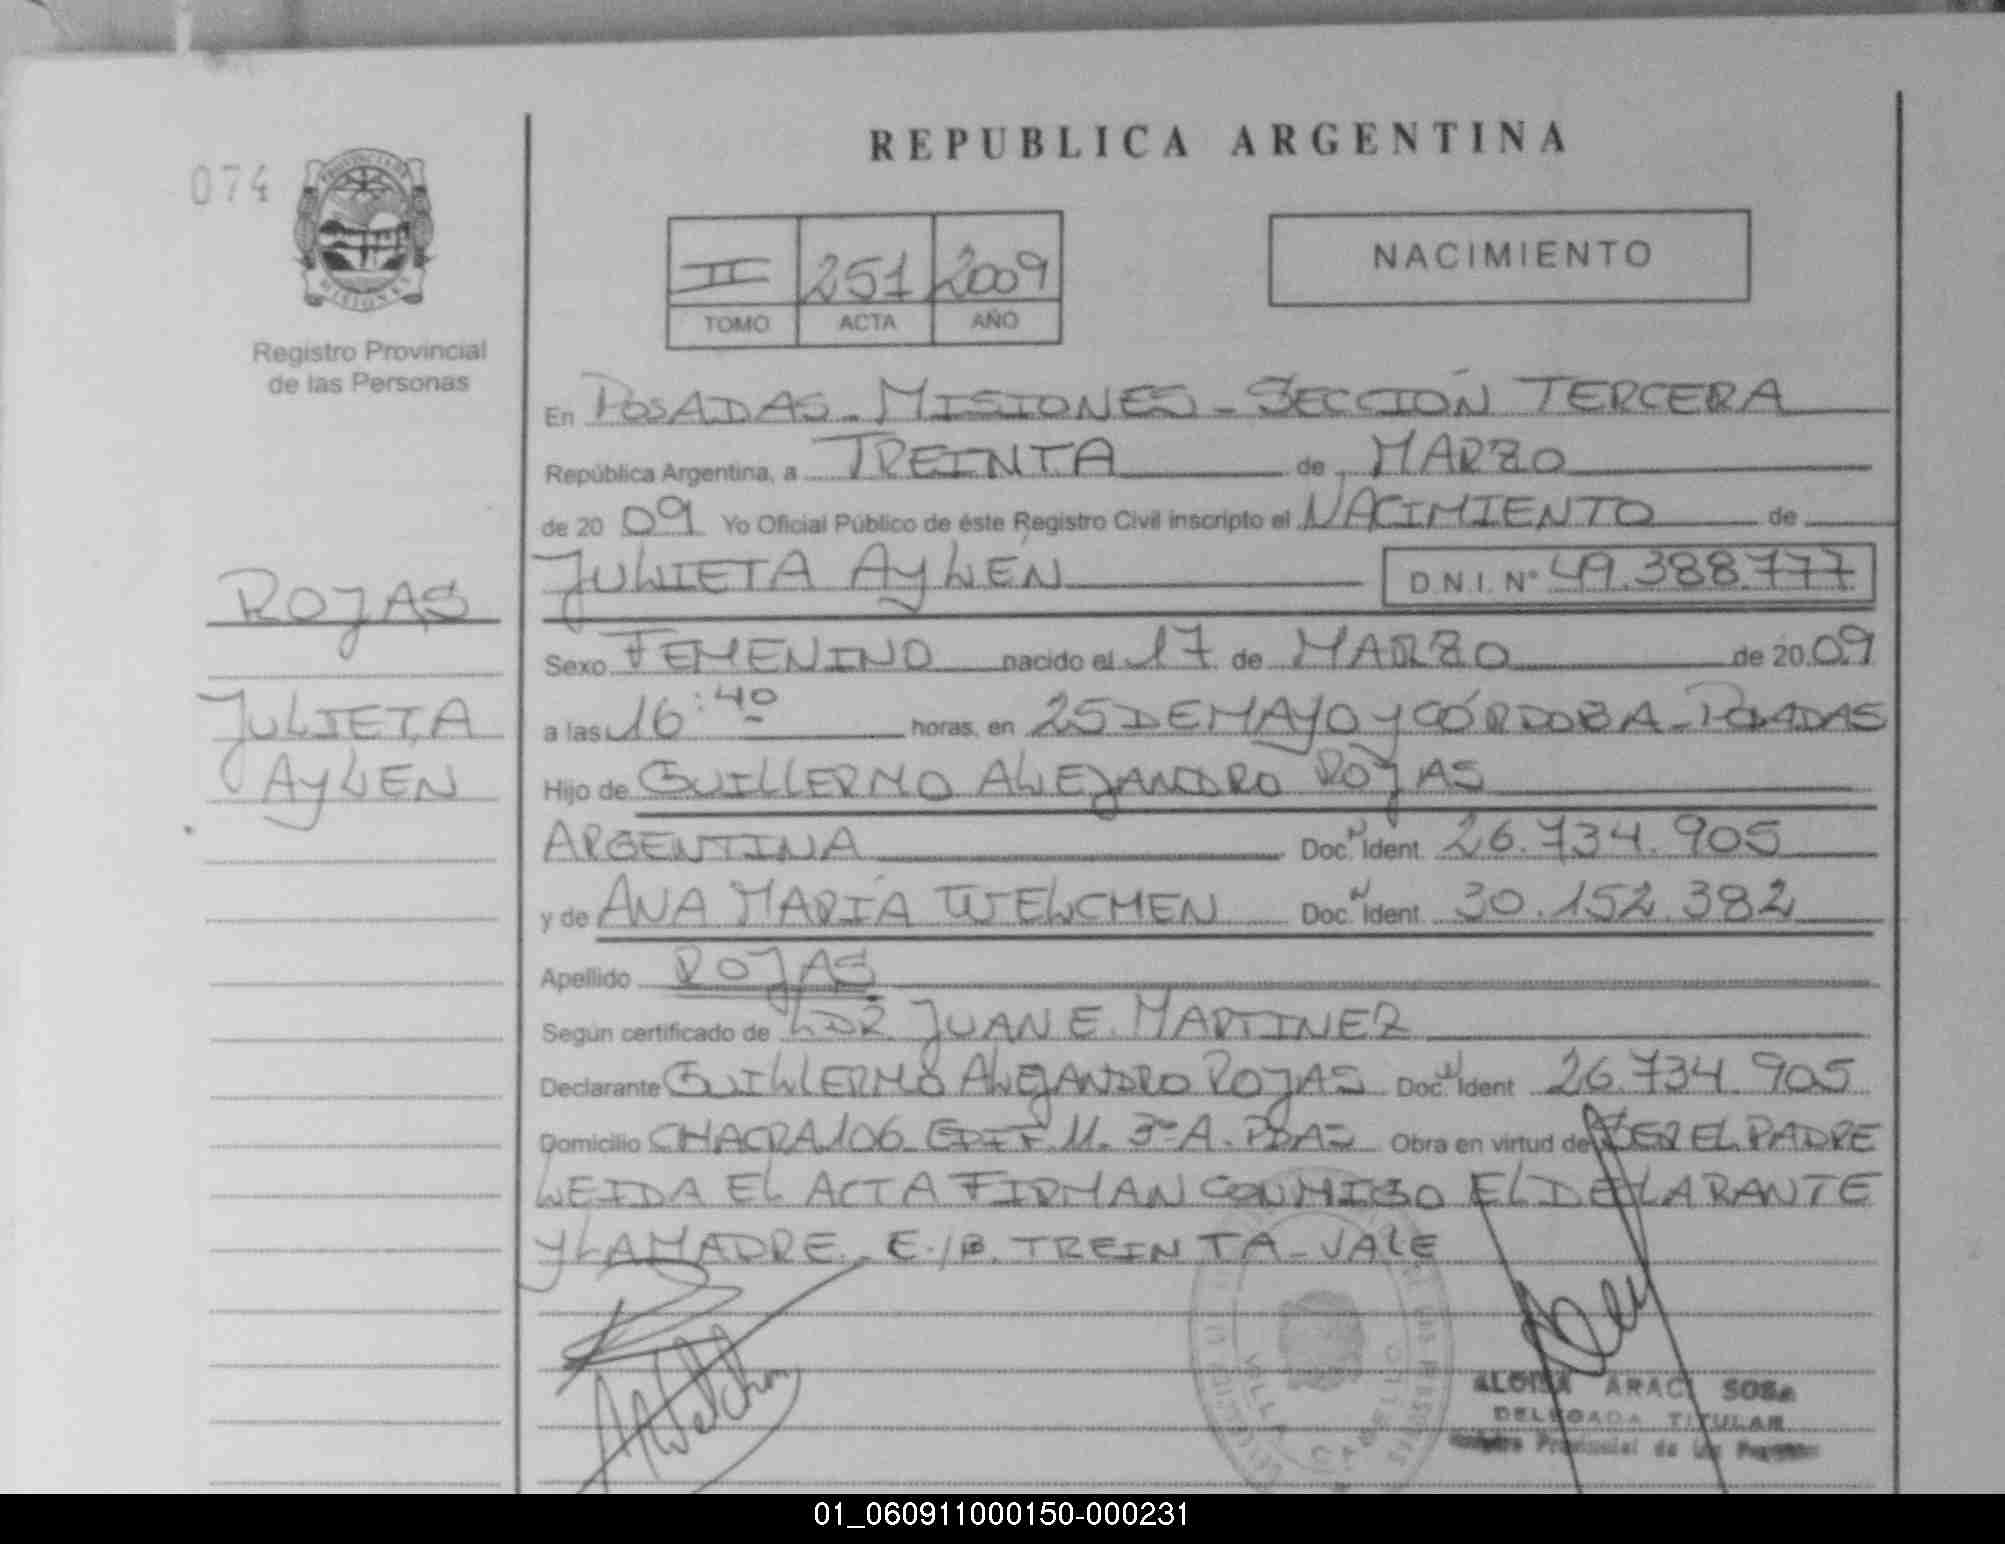 REPUBLICA ARGENTINA
074
PROVINCIA DE
MISIONES
Registro Provincial
de las Personas
II 251 2009
TOMO ACTA AÑO
NACIMIENTO
En POSADAS - MISIONES - SECCIÓN TERCERA
República Argentina, a TREINTA de MARZO
de 20 09 Yo Oficial Público de éste Registro Civil inscripto el NACIMIENTO de
JULIETA AYLÉN D.N.I. N° 49.388.777
ROJAS
JULIETA
AYLEN
Sexo FEMENINO nacido el 17 de MARZO de 20 09
a las 16:40 horas, en 25 DE MAYO Y CÓRDOBA - POSADAS
Hijo de GUILLERMO ALEJANDRO ROJAS
ARGENTINA Doc. N Ident. 26.734.905
y de ANA MARÍA WELCHEN Doc. N Ident. 30.152.382
Apellido ROJAS
Según certificado de JUAN E. MARTINEZ
Declarante GUILLERMO ALEJANDRO ROJAS Doc. N Ident 26.734.905
Domicilio CHACRA 106 EDIF 11. 3° A. PDAS Obra en virtud de SER EL PADRE
LEIDA EL ACTA FIRMAN CONMIGO EL DELARANTE
Y LA MADRE. E./B. TREINTA - VALE
VILLA CABELLO
ARACI SOSA
DELEGADA TITULAR
Registro Provincial de las Personas
01_060911000150-000231